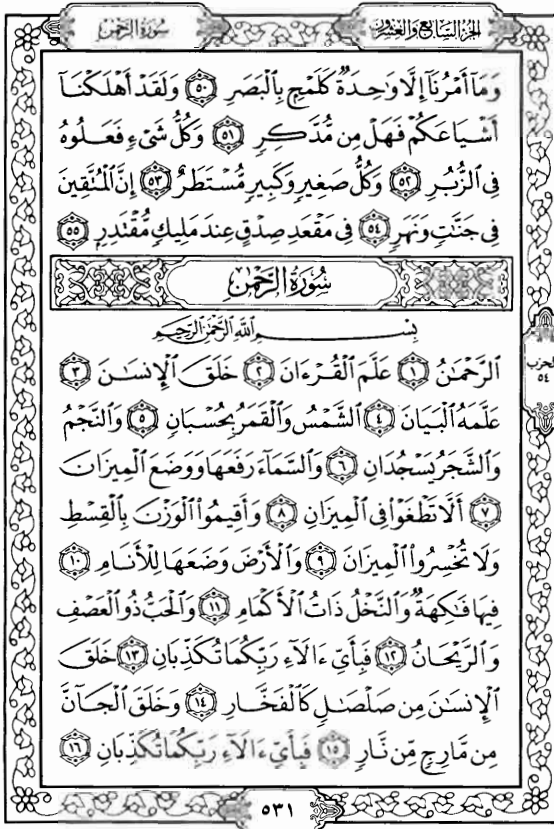 الجزء السابع والعشرون
سورة الرحمن
وَمَآ أَمْرُنَآ إِلَّا وَٰحِدَةٌ كَلَمْحٍۭ بِٱلْبَصَرِ ٥٠ وَلَقَدْ أَهْلَكْنَآ
أَشْيَاعَكُمْ فَهَلْ مِن مُّدَّكِرٍ ٥١ وَكُلُّ شَىْءٍ فَعَلُوهُ
فِى ٱلزُّبُرِ ٥٢ وَكُلُّ صَغِيرٍ وَكَبِيرٍ مُّسْتَطَرٌ ٥٣ إِنَّ ٱلْمُتَّقِينَ
فِى جَنَّٰتٍ وَنَهَرٍ ٥٤ فِى مَقْعَدِ صِدْقٍ عِندَ مَلِيكٍ مُّقْتَدِرٍۭ ٥٥
سُورَةُ الرَّحْمَٰن
بِسْمِ ٱللَّهِ ٱلرَّحْمَٰنِ ٱلرَّحِيمِ
ٱلرَّحْمَٰنُ ١ عَلَّمَ ٱلْقُرْءَانَ ٢ خَلَقَ ٱلْإِنسَٰنَ ٣
عَلَّمَهُ ٱلْبَيَانَ ٤ ٱلشَّمْسُ وَٱلْقَمَرُ بِحُسْبَانٍ ٥ وَٱلنَّجْمُ
وَٱلشَّجَرُ يَسْجُدَانِ ٦ وَٱلسَّمَآءَ رَفَعَهَا وَوَضَعَ ٱلْمِيزَانَ
٧ أَلَّا تَطْغَوْا۟ فِى ٱلْمِيزَانِ ٨ وَأَقِيمُوا۟ ٱلْوَزْنَ بِٱلْقِسْطِ
وَلَا تُخْسِرُوا۟ ٱلْمِيزَانَ ٩ وَٱلْأَرْضَ وَضَعَهَا لِلْأَنَامِ ١٠
فِيهَا فَٰكِهَةٌ وَٱلنَّخْلُ ذَاتُ ٱلْأَكْمَامِ ١١ وَٱلْحَبُّ ذُو ٱلْعَصْفِ
وَٱلرَّيْحَانُ ١٢ فَبِأَىِّ ءَالَآءِ رَبِّكُمَا تُكَذِّبَانِ ١٣ خَلَقَ
ٱلْإِنسَٰنَ مِن صَلْصَٰلٍ كَٱلْفَخَّارِ ١٤ وَخَلَقَ ٱلْجَآنَّ
مِن مَّارِجٍ مِّن نَّارٍ ١٥ فَبِأَىِّ ءَالَآءِ رَبِّكُمَا تُكَذِّبَانِ ١٦
الحزب
٥٤
٥٣١